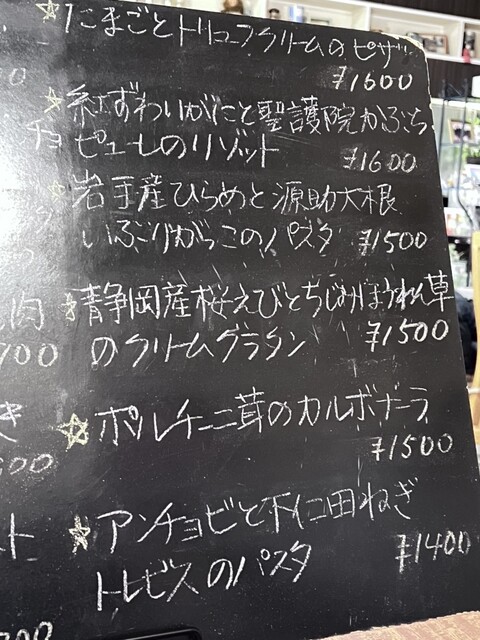 ☆たまごとトリュフクリームのピザ
¥1600
☆紅ずわいがにと聖護院かぶら
ピューレのリゾット ¥1600
☆岩手産ひらめと源助大根
いぶりがっこのパスタ ¥1500
☆静岡産桜えびとちぢみほうれん草
のクリームグラタン ¥1500
☆ポルチーニ茸のカルボナーラ
¥1500
☆アンチョビと下仁田ねぎ
トレビスのパスタ ¥1400
肉
き
ト